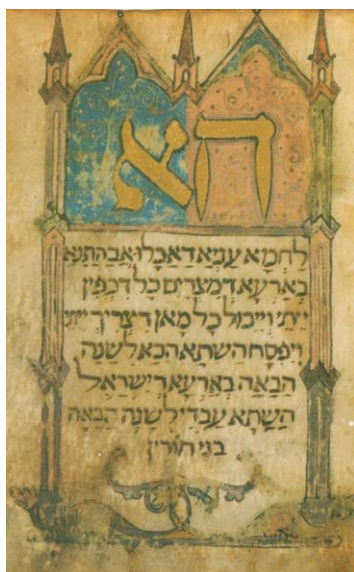 הא
לַחְמָא עַנְיָא דַאֲכַלוּ אֲבָהָתַנָא
בְאַרְעָא דְמִצְרַיִם כָל דִכְפִין
יֵיתֵי וְיֵיכוֹל כָל מַאן דִצְרִיךְ יֵיתֵי
וְיִפְסַח הַשַתָא הָכָא לְשָנָה
הַבָאָה בְאַרְעָא דְיִשְרָאֵל
הַשַתָא עַבְדֵי לְשָנָה הַבָאָה
בְנֵי חוֹרִין